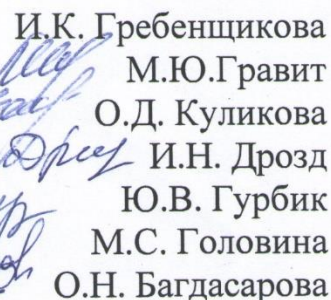 И.К. Гребенщикова
М.Ю.Гравит
О.Д. Куликова
И.Н. Дрозд
Ю.В. Гурбик
М.С. Головина
О.Н. Багдасарова